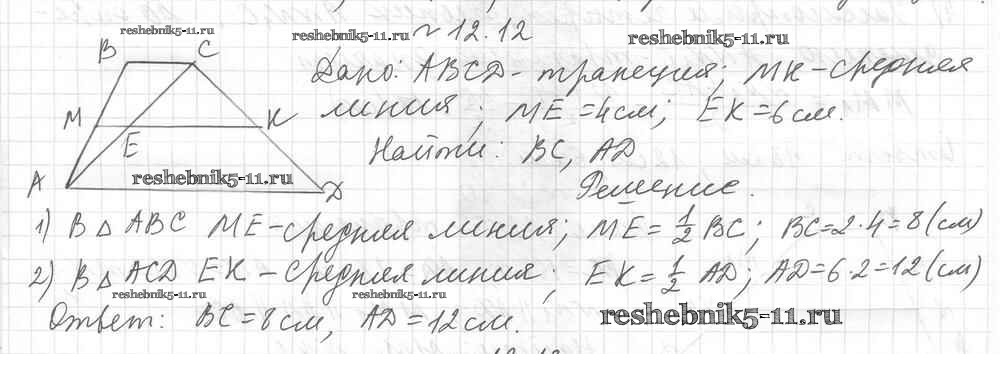 reshebnik5-11.ru reshebnik5-11.ru № 12.12 reshebnik5-11.ru
B C
Дано: ABCD - трапеция; MK - средняя
M K
линия; ME = 4 см; EK = 6 см.
E
Найти: BC, AD
A D
reshebnik5-11.ru
Решение.
1) В △ ABC ME - средняя линия; ME = 1/2 BC; BC = 2 · 4 = 8 (см)
2) В △ ACD EK - средняя линия; EK = 1/2 AD; AD = 6 · 2 = 12 (см)
reshebnik5-11.ru reshebnik5-11.ru
Ответ: BC = 8 см, AD = 12 см.
reshebnik5-11.ru